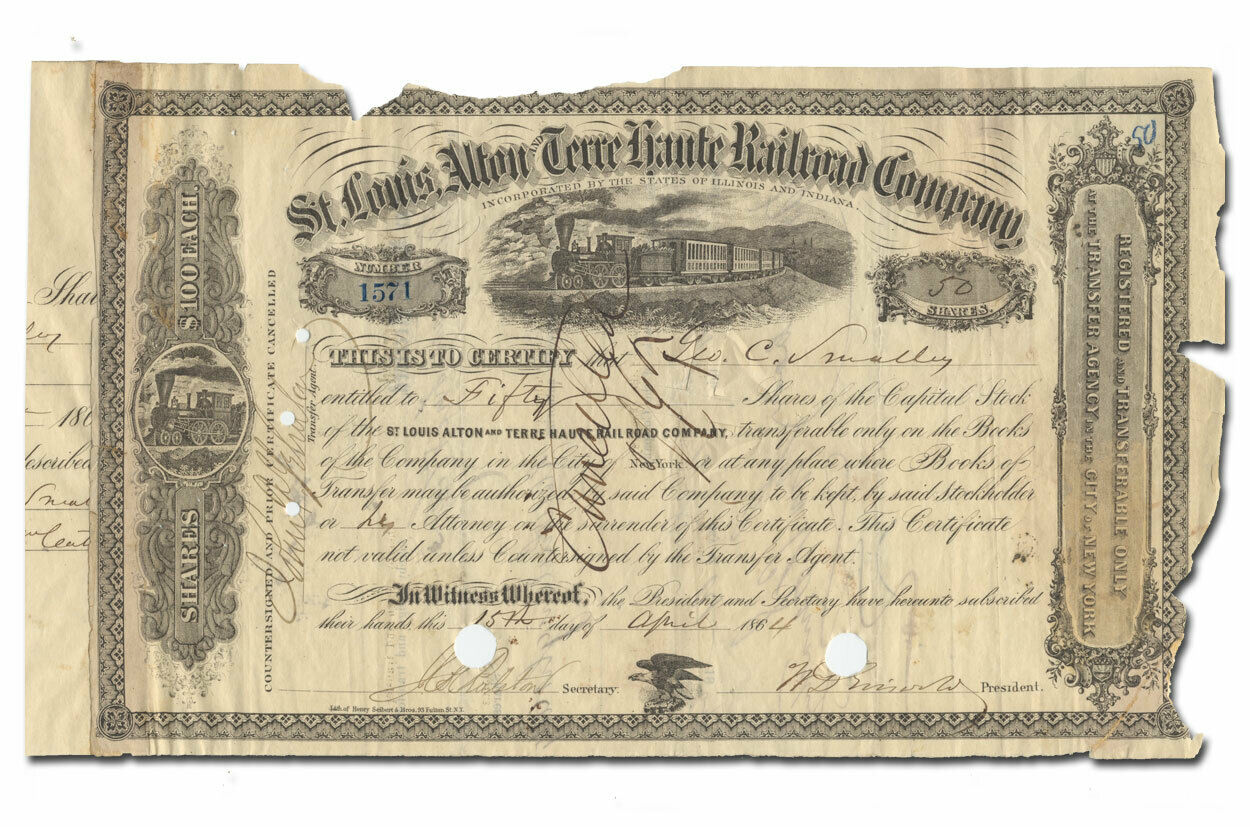 St. Louis, Alton AND Terre Haute Railroad Company,
INCORPORATED BY THE STATES OF ILLINOIS AND INDIANA.
50
NUMBER
1571
50
SHARES.
THIS IS TO CERTIFY that Geo. C. Smalley
entitled to Fifty Shares of the Capital Stock
of the ST LOUIS ALTON AND TERRE HAUTE RAIL ROAD COMPANY, transferable only on the Books
of the Company in the City of New York or at any place where Books of
Transfer may be authorized said Company to be kept, by said Stockholder
or his Attorney on surrender of this Certificate. This Certificate
not valid unless Countersigned by the Transfer Agent.
In Witness Whereof, the President and Secretary have hereunto subscribed
their hands this 15th day of April 1864
Secretary.
President.
Lith. of Henry Seibert & Bros. 93 Fulton St. N.Y.
Cancelled
SHARES $100 EACH.
COUNTERSIGNED AND PRIOR CERTIFICATE CANCELLED
Transfer Agent.
REGISTERED AND TRANSFERABLE ONLY
AT THE TRANSFER AGENCY IN THE CITY OF NEW YORK
Shar
ley
186
described
Smal